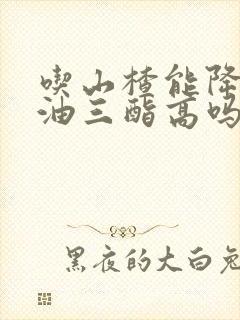 喫山楂能降
油三酯高吗
黑夜的大白兔